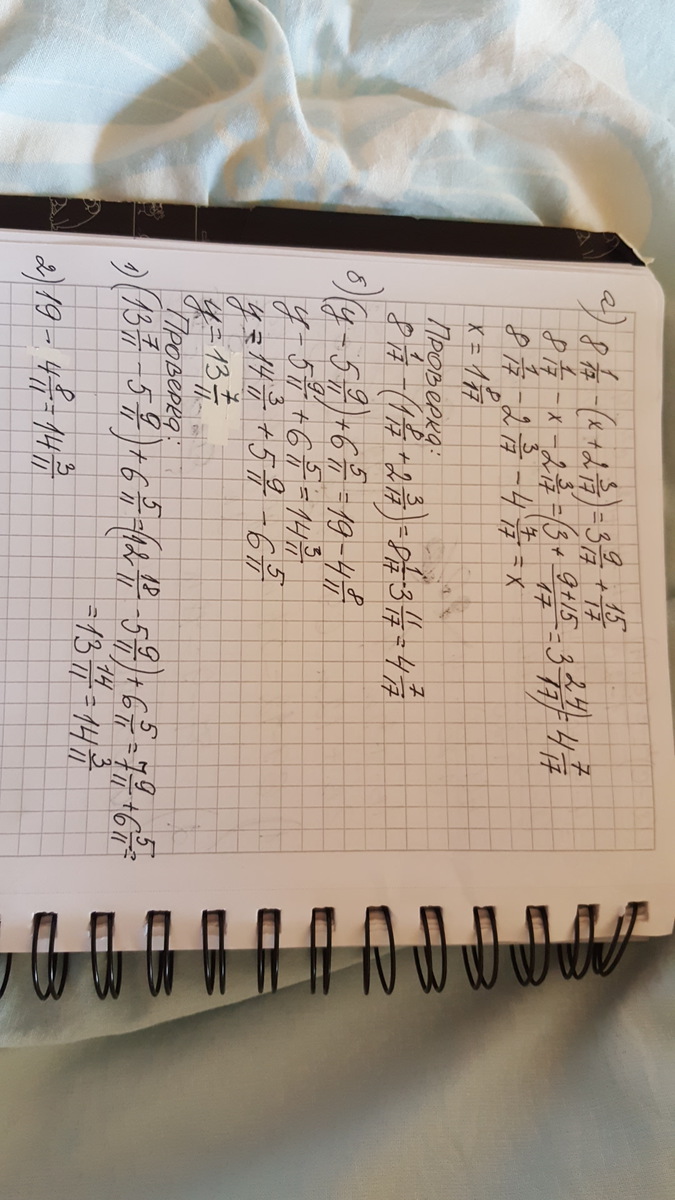 а) 8 1/17 - (x + 2 3/17) = 3 9/17 + 15/17
8 1/17 - x - 2 3/17 = (3 + 9+15/17 = 3 24/17) = 4 7/17
8 1/17 - 2 3/17 - 4 7/17 = x
x = 1 8/17
Проверка:
8 1/17 - (1 8/17 + 2 3/17) = 8 1/17 - 3 11/17 = 4 7/17
б) (y - 5 9/11) + 6 5/11 = 19 - 4 8/11
y - 5 9/11 + 6 5/11 = 14 3/11
y = 14 3/11 + 5 9/11 - 6 5/11
y = 13 7/11
Проверка:
1) (13 7/11 - 5 9/11) + 6 5/11 = (12 18/11 - 5 9/11) + 6 5/11 = 7 9/11 + 6 5/11 =
= 13 14/11 = 14 3/11
2) 19 - 4 8/11 = 14 3/11